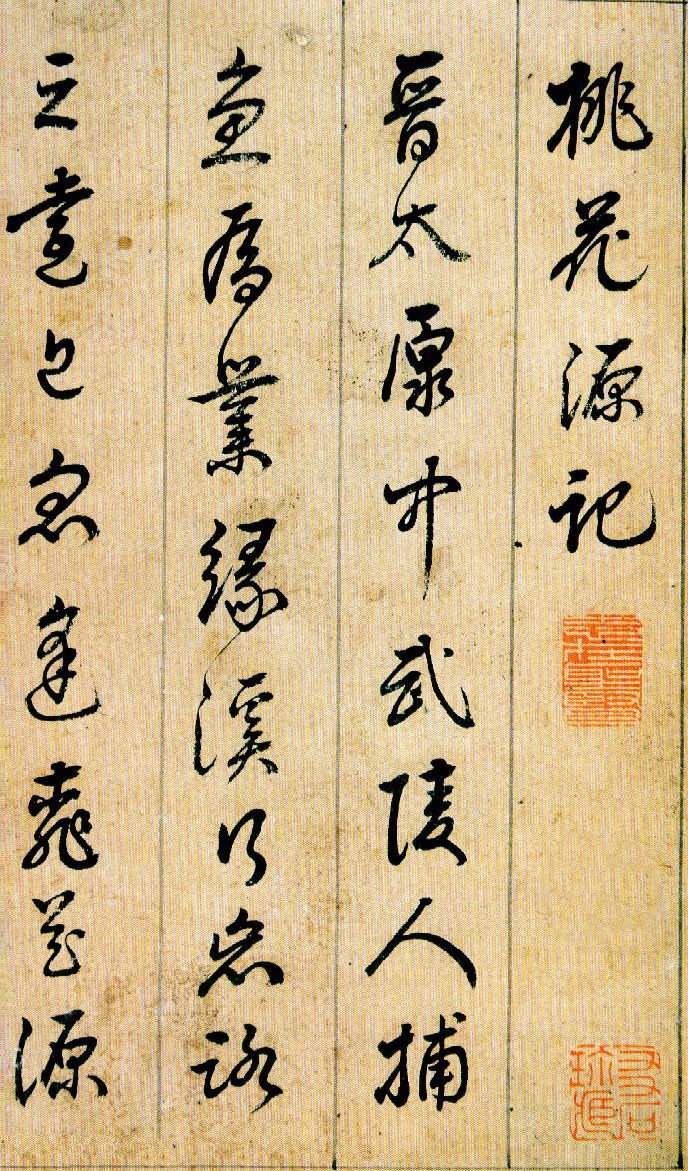 桃花源記
晉太原中武陵人捕
魚為業緣溪行忘路
之遠近忽逢桃花源